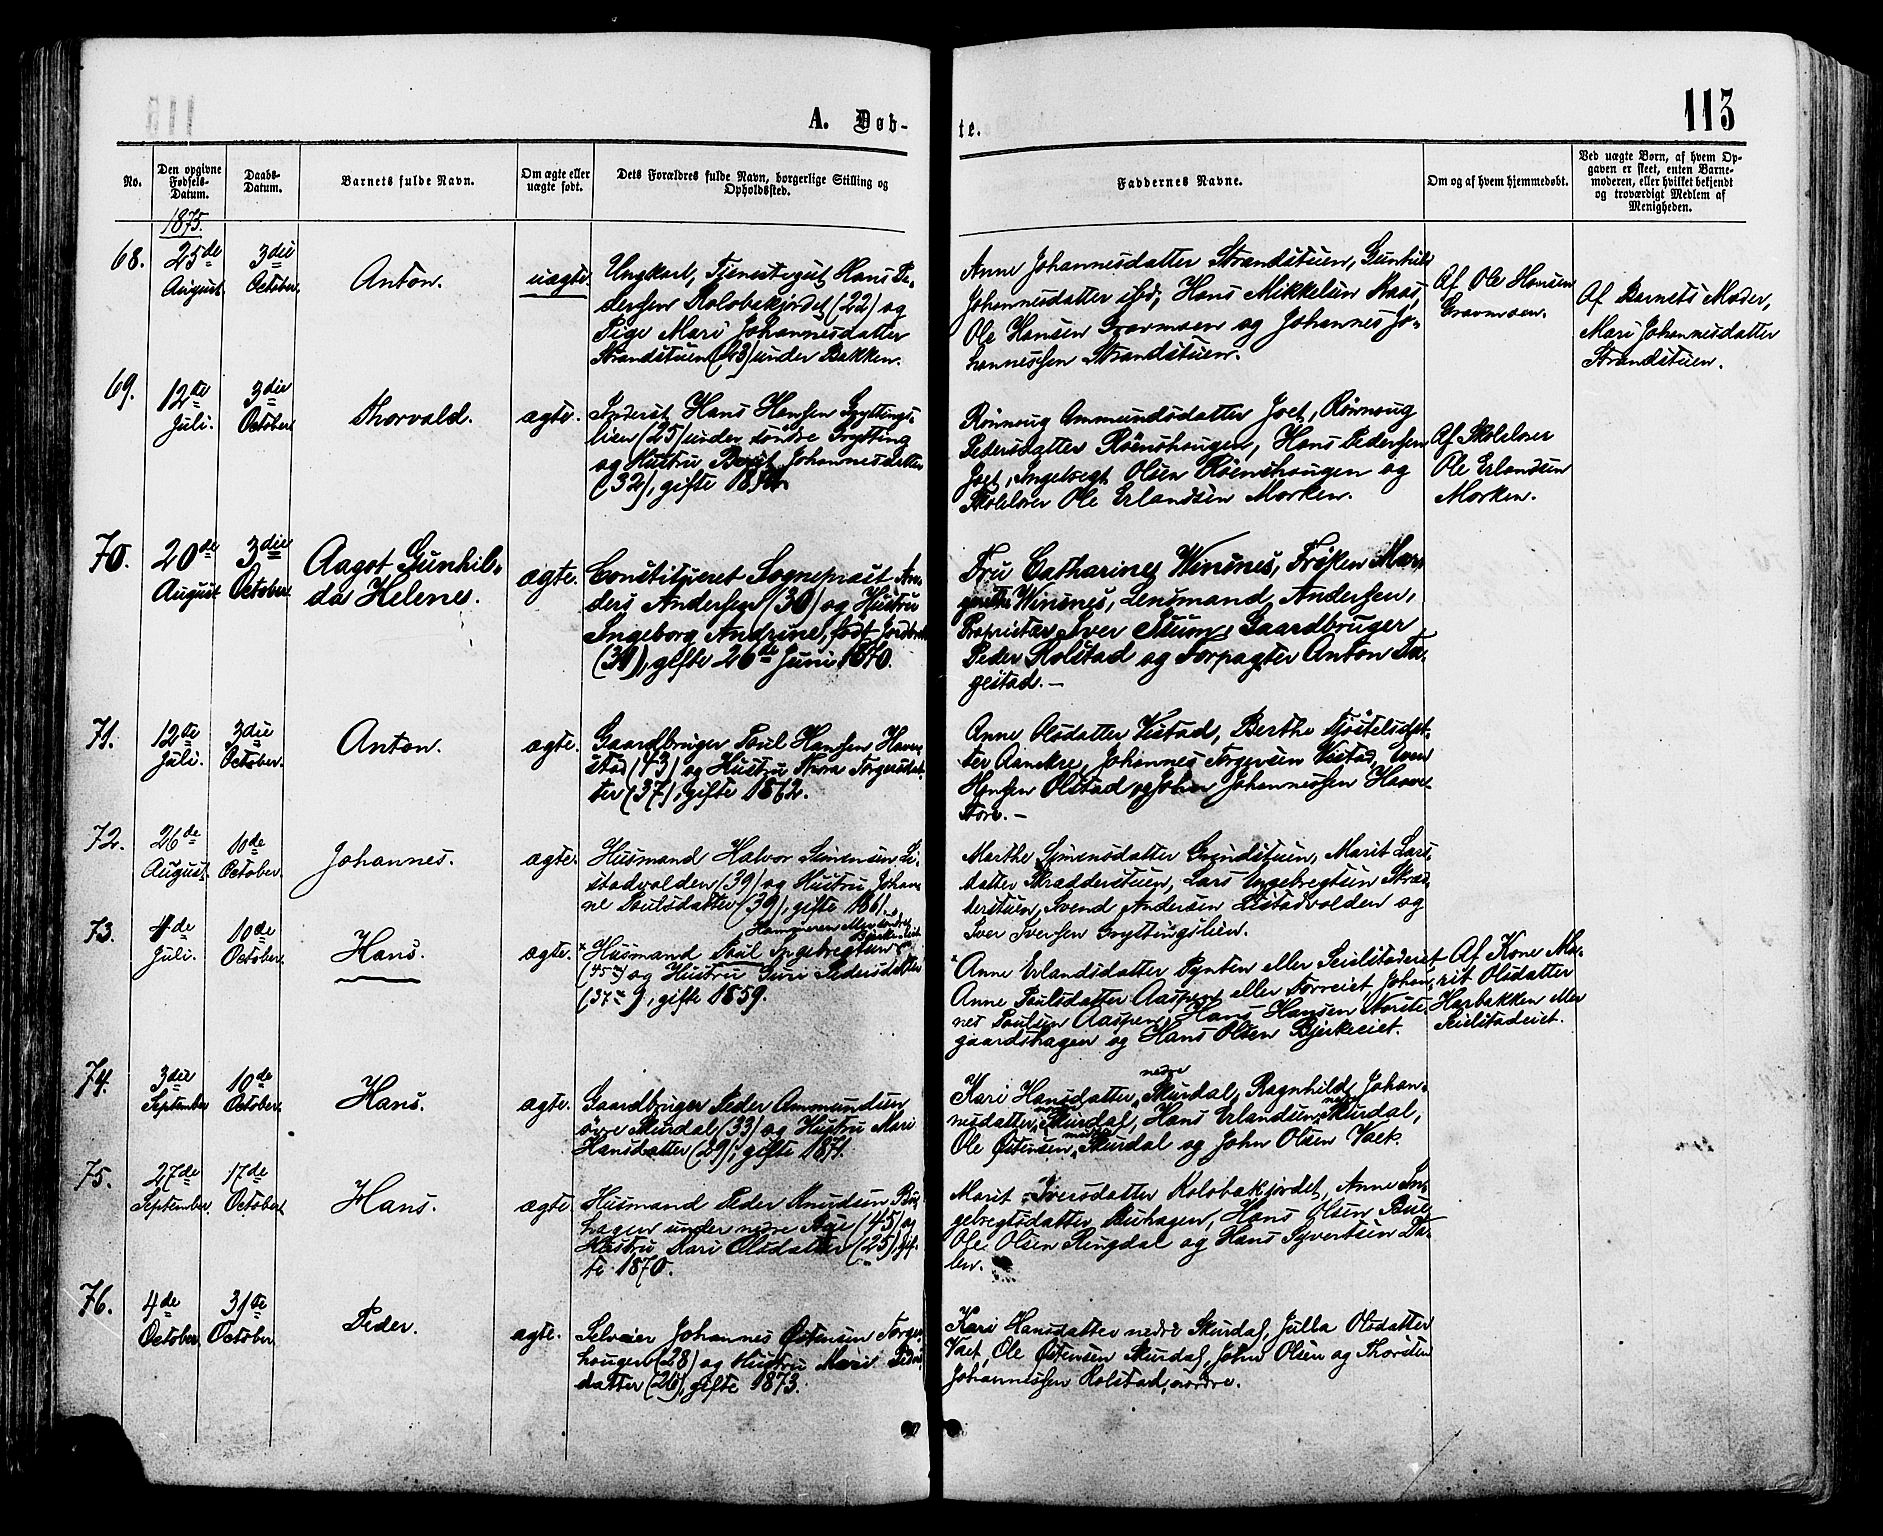 113
A. Døb-
te.
No.
Den opgivne Fødsels-Datum.
Daabs-Datum.
Barnets fulde Navn.
Om ægte eller uægte født.
Dets Forældres fulde Navn, borgerlige Stilling og Opholdssted.
Faddernes Navne.
Om og af hvem hjemmedøbt.
Ved uægte Børn, af hvem Op-
gaven er skeet, enten Barne-
moderen, eller hvilket bekjendt
og troværdigt Medlem af
Menigheden.
1875.
68.
25de August.
3die October.
Anton.
uægte.
Ungkarl, Tjenestegut Hans Pe-
dersen Kolobakjordet (22) og
Pige Mari Johannesdatter
Strandstuen (23) under Bakken.
Anne Johannesdatter Strandstuen, Gunhild
Johannesdatter ibd, Hans Mikkelsen Raas,
Ole Hansen Gravmoen og Johannes Jo-
hannessen Strandstuen.
Af Ole Hansen
Gravmoen.
Af Barnets Moder,
Mari Johannesdatter
Strandstuen.
69.
12te Juli.
3die October.
Thorvald.
ægte.
Inderst Hans Hansen Grytting-
lien (25) under søndre Grytting
og Hustru Berit Johannesdatter
(32), gifte
Rønnoug Ammundsdatter Joet, Rønnoug
Pedersdatter Røenshaugen, Hans Pedersen
Joet, Ingebregt Olsen Røenshaugen og
Skolelærer Ole Erlandsen Morken.
Af Skolelærer
Ole Erlandsen
Morken.
70.
20de August
3die October.
Aagot Gunhil-
da Helene.
ægte.
Constitueret Sognepræst An-
ders Andersen (30) og Hustru
Ingeborg Andrine, født
gifte 26de Juni 1870.
Fru Catharine Winsnes, Frøken Mar-
grethe Winsnes, Lensmand Andersen,
Proprietær Iver Stum, Gaardbruger
Peder Kolstad og Forpagter Anton Ta-
gestad.—
71.
12te Juli.
3die October.
Anton.
ægte.
Gaardbruger Poul Hansen Haver-
stad (43) og Hustru Thora Torgersdat-
ter (37), gifte 1862.
Anne Olsdatter Vistad, Berthe Tjøstelsdat-
ter Aanekre, Johannes Torgersen Vistad, Iver
Hansen Olstad og Johan Johannessen Haver-
72.
26de August.
10de October.
Johannes.
ægte.
Husmand Halvor Simensen Li-
stadvolden (39) og Hustru Johan-
ne Poulsdatter (39), gifte 1861.
Marthe Simensdatter Grindstuen, Marit Lars-
datter Skrædderstuen, Lars Engebregtsen Skræd-
derstuen, Svend Andersen Listadvolden og
Iver Iversen Gryttingslien.
73.
4de Juli.
10de October.
Hans.
ægte.
Husmand Poul Ingebregtsen
(45) og Hustru Guri Pedersdatter
(37), gifte 1859.
Anne Erlandsdatter Pynten eller Seielstadeiet
Anne Poulsdatter Aaspen eller Forreiet, Johan-
nes Poulsen Aaspen, Hans Hansen Nordste-
gaardshagen og Hans Olsen Bjerkeeiet.
Af Kone Ma-
rit Olsdatter
Harbakken eller
Seielstadeiet.
74.
3die September
10de October.
Hans.
ægte.
Gaardbruger Peder Ammundsen
øvre Skurdal (33) og Hustru Mari
Hansdatter (29), gifte 1871.
Kari Hansdatter nedre Skurdal, Ragnhild Johan-
nesdatter Skurdal, Hans Erlandsen Skurdal,
Ole Østensen Skurdal og John Olsen Vaet.
75.
27de September.
17de October.
Hans.
ægte
Husmand Peder Knudsen Bu-
hagen under nedre Aye (45) og
Hustru Kari Olsdatter (25), gif-
te 1870.
Marit Iversdatter Kolobakjordet, Anne In-
gebregtsdatter Buhagen, Hans Olsen Bue,
Ole Olsen Ringdal og Hans Syvertsen Da-
len.
76.
4de October.
31te October.
Peder.
ægte.
Selveier Johannes Østensen Torger-
hougen (28) og Hustru Mari Peders-
datter (26), gifte 1873.
Kari Hansdatter nedre Skurdal, Julla Olsdatter
Vaet, Ole Østensen Skurdal, John Olsen og Thorsten
Johannessen Kolstad, nordre.